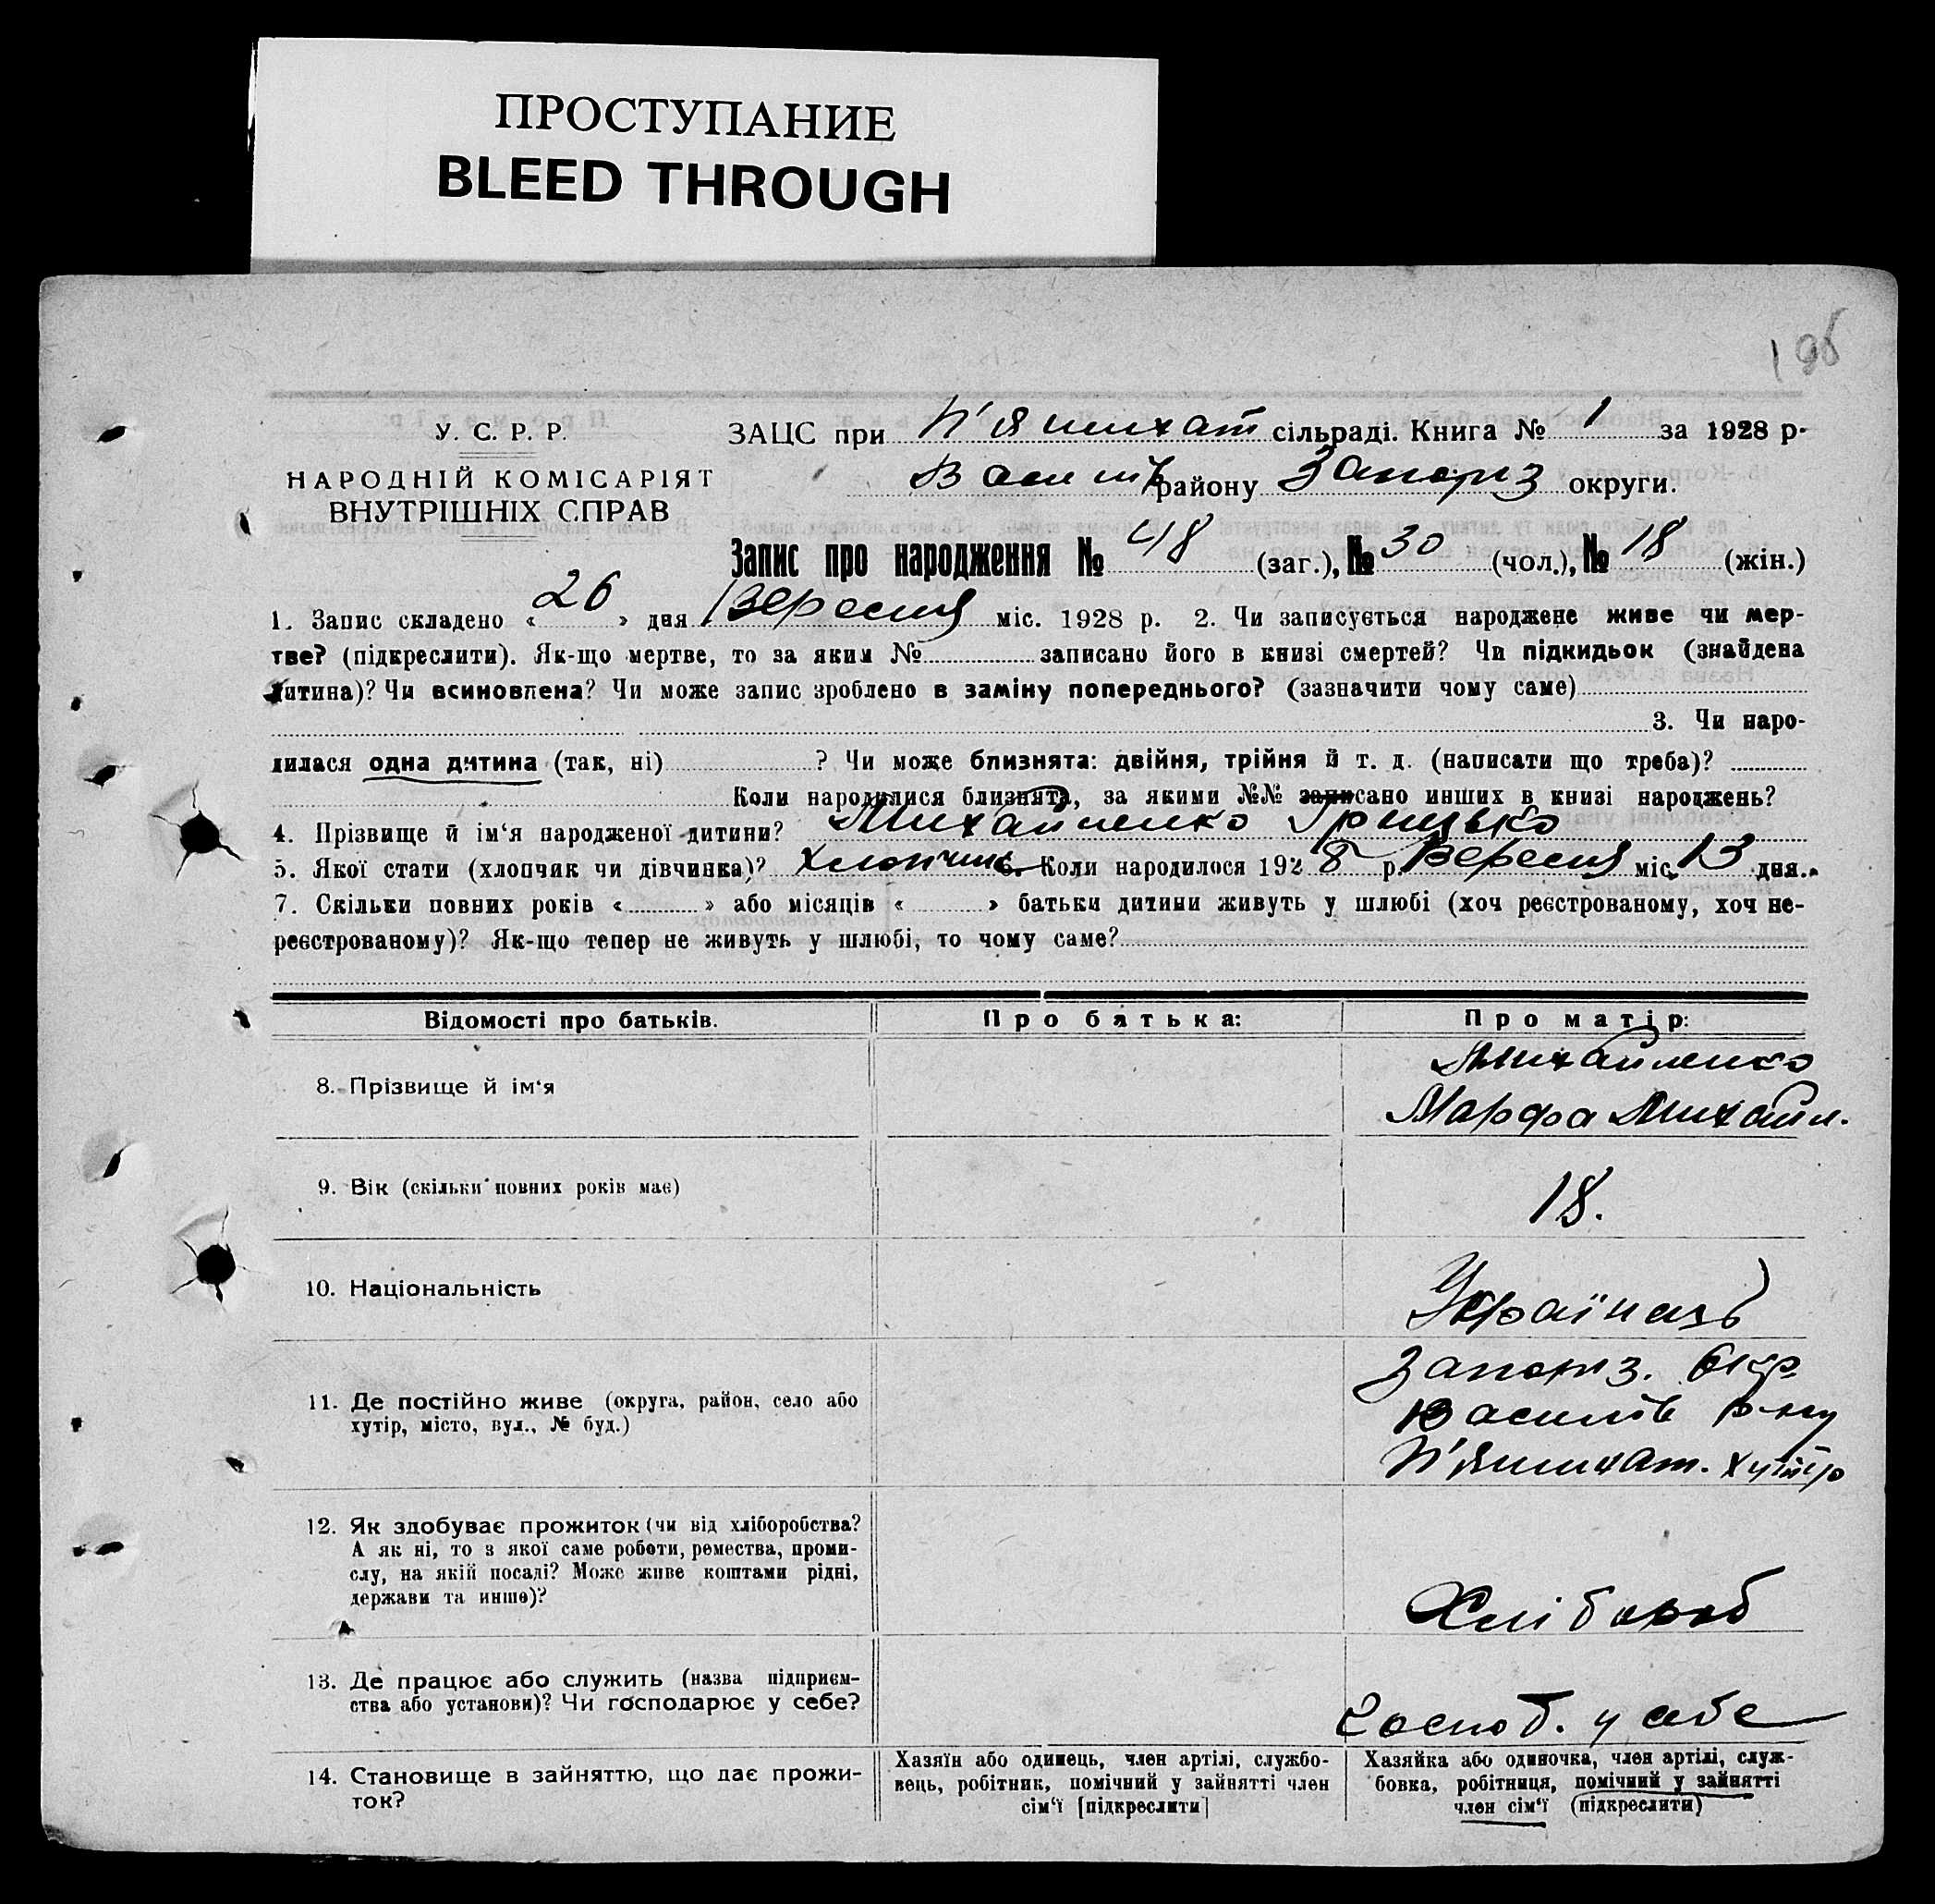 ПРОСТУПАНИЕ
BLEED THROUGH
196
У. С. Р. Р.
НАРОДНІЙ КОМІСАРІЯТ
ВНУТРІШНІХ СПРАВ
ЗАЦС при П'ятихат сільраді. Книга № 1 за 1928 р.
району Запоріз округи.
Запис про народження № 48 (заг.), № 30 (чол.), № 18 (жін.)
1. Запис складено « 26 » дня Вересня міс. 1928 р. 2. Чи записується народжене живе чи мер-
тве? (підкреслити). Як-що мертве, то за яким № записано його в книзі смертей? Чи підкидьок (знайдена
дитина)? Чи всиновлена? Чи може запис зроблено в заміну попереднього? (зазначити чому саме)
3. Чи наро-
дилася одна дитина (так, ні) ? Чи може близнята: двійня, трійня й т. д. (написати що треба)?
Коли народилися близнята, за якими №№ записано инших в книзі народжень?
4. Прізвище й ім'я народженої дитини? Михайленко Грицько
5. Якої стати (хлопчик чи дівчинка)? Хлопчик 6. Коли народилося 1928 р. Вересня міс. 13 дня.
7. Скільки повних років « » або місяців « » батьки дитини живуть у шлюбі (хоч реєстрованому, хоч не-
реєстрованому)? Як-що тепер не живуть у шлюбі, то чому саме?
Відомості про батьків. Про батька: Про матір:
8. Прізвище й ім'я
Михайленко
Марфа Михайл.
9. Вік (скільки повних років має)
18.
10. Національність
11. Де постійно живе (округа, район, село або
хутір, місто, вул., № буд.)
Запоріз. Окр
Василів р-ну
П'ятихат. хутір
12. Як здобуває прожиток (чи від хліборобства?
А як ні, то з якої саме роботи, ремества, проми-
слу, на якій посаді? Може живе коштами рідні,
держави та инше)?
Хлібороб
13. Де працює або служить (назва підприєм-
ства або установи)? Чи господарює у себе?
Господ. у себе
14. Становище в зайняттю, що дає прожи-
ток?
Хазяїн або одинець, член артілі, службо-
вець, робітник, помічний у зайнятті член
сім'ї [підкреслити]
Хазяйка або одиночка, член артілі, служ-
бовка, робітниця, помічний у зайнятті
член сім'ї (підкреслити)